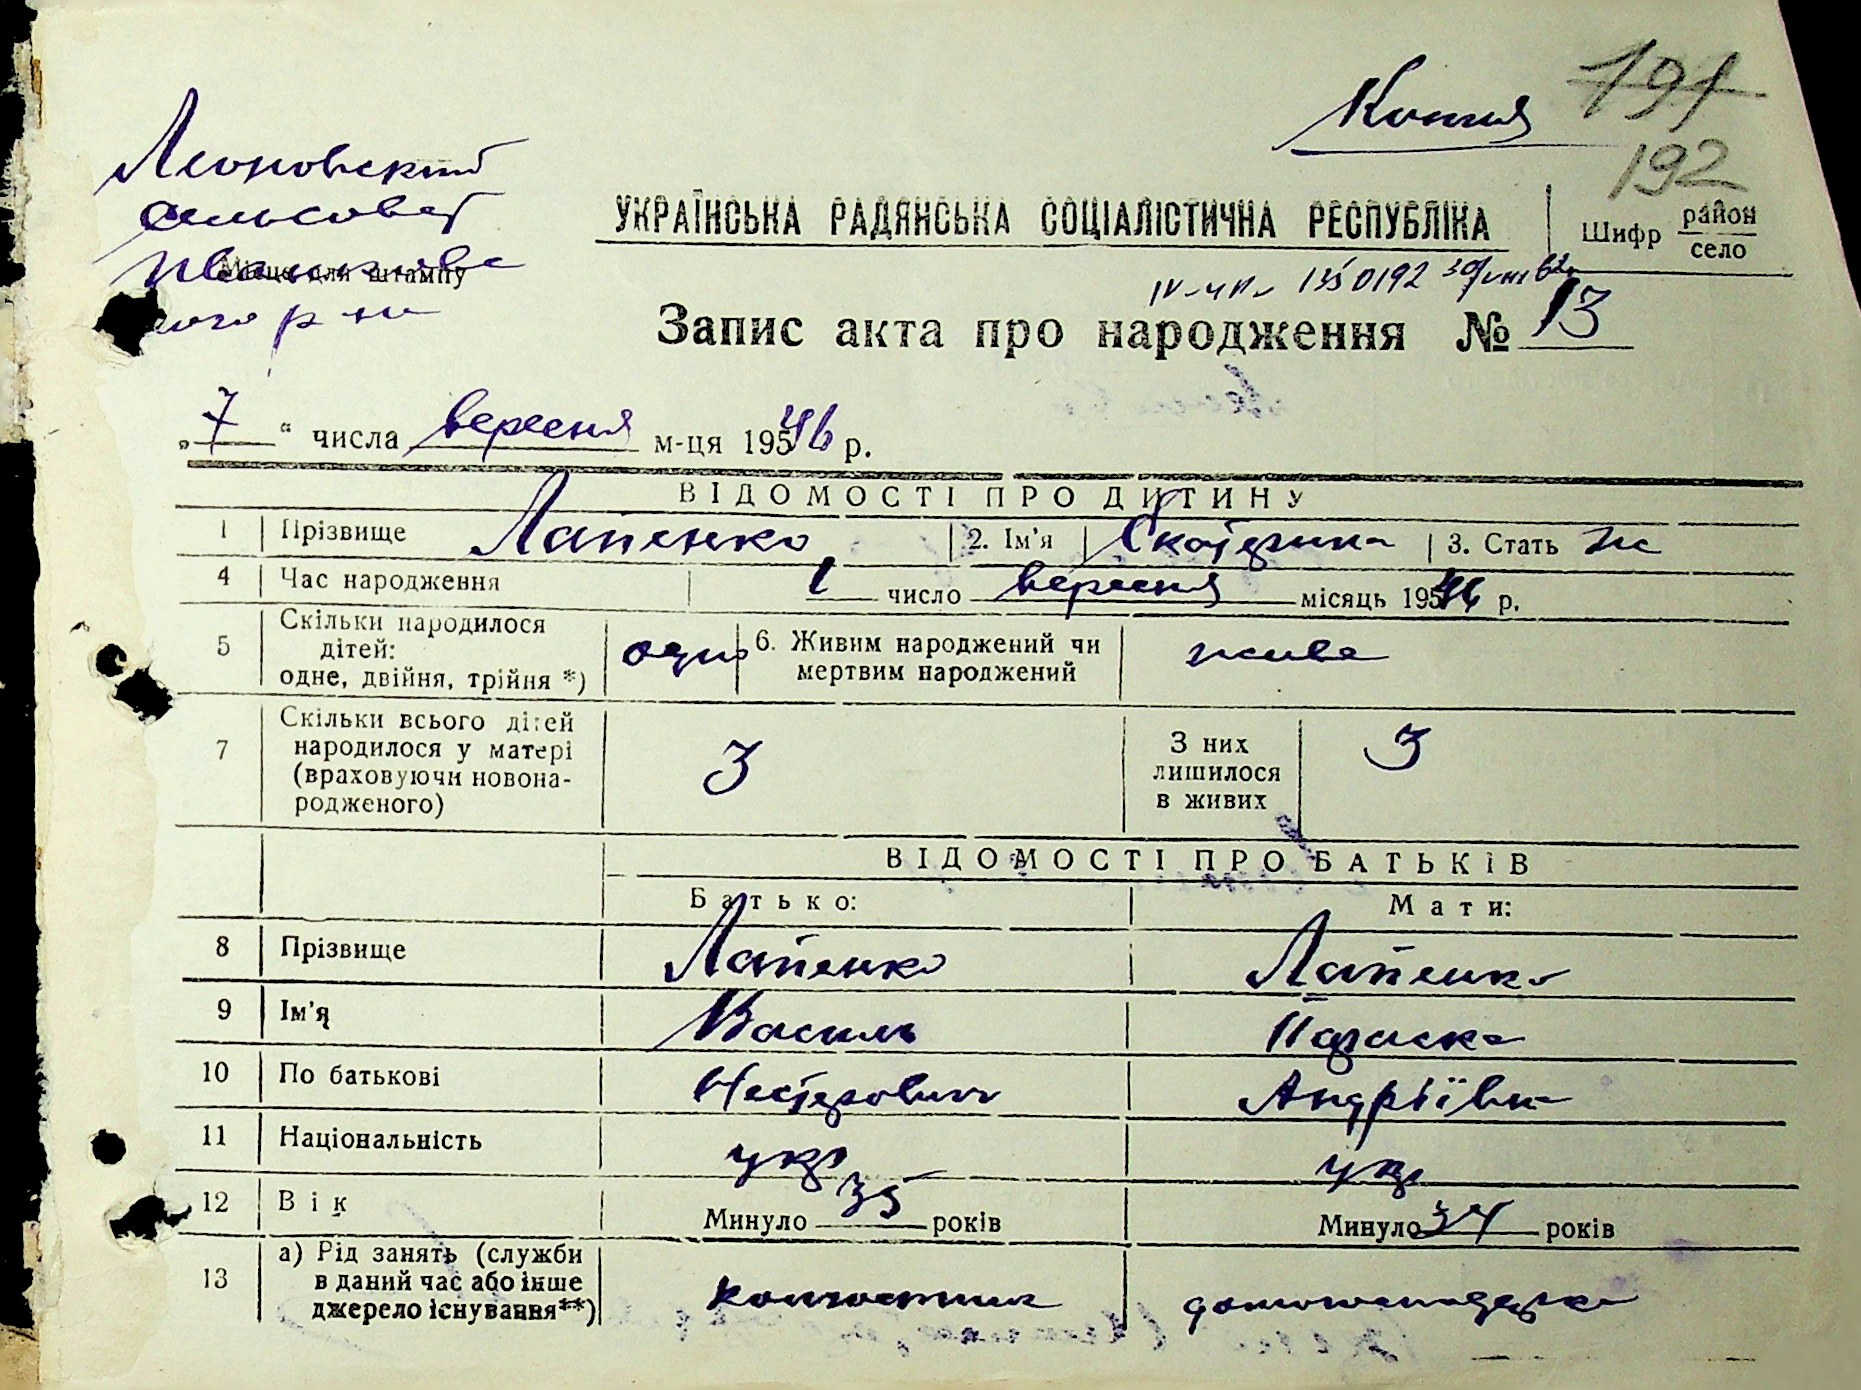 Копия
191
192
Леоновский
сельсовет
Иванков
Місце для штампу
ского р-на
УКРАЇНСЬКА РАДЯНСЬКА СОЦІАЛІСТИЧНА РЕСПУБЛІКА
Шифр район
село
135 0192
Запис акта про народження № 13
„7“ числа вересня м-ця 19546 р.
ВІДОМОСТІ ПРО ДИТИНУ
1 Прізвище Лапенко 2. Ім'я Екатерина 3. Стать ж
4 Час народження 1 число вересня місяць 19546 р.
5 Скільки народилося
дітей:
одне, двійня, трійня *) одно 6. Живим народжений чи
мертвим народжений живе
7 Скільки всього дітей
народилося у матері
(враховуючи новона-
родженого) 3 З них
лишилося
в живих 3
ВІДОМОСТІ ПРО БАТЬКІВ
Батько: Мати:
8 Прізвище Лапенко Лапенко
9 Ім'я Василь Параска
10 По батькові Нестерович Андріївна
11 Національність укр укр
12 Вік Минуло 35 років Минуло 34 років
13 а) Рід занять (служби
в даний час або інше
джерело існування**) колгоспник домогосподарка